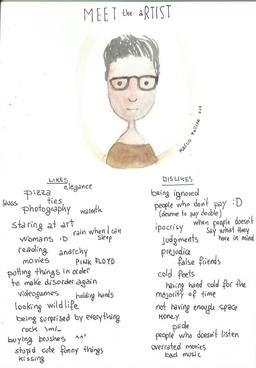 MEET the aRTIST
LIKES
elegance
pizza
ties
hugs
photography
warmth
staring at art
rain when I can
sleep
womans :D
reading
anarchy
movies
PINK FLOYD
putting things in order
to make disorder again
videogames
holding hands
looking wildlife
being surprised by everything
rock \m/_
buying brushes ^^'
stupid cute funny things
kissing
DISLIKES
being ignored
people who don't pay :D
(desire to pay double)
ipocrisy
when people doesn't
say what they
have in mind
judgments
prejudice
false friends
cold feets
having hand cold for the
majority of time
not having enough space
honey
pride
people who doesn't listen
overrated movies
bad music